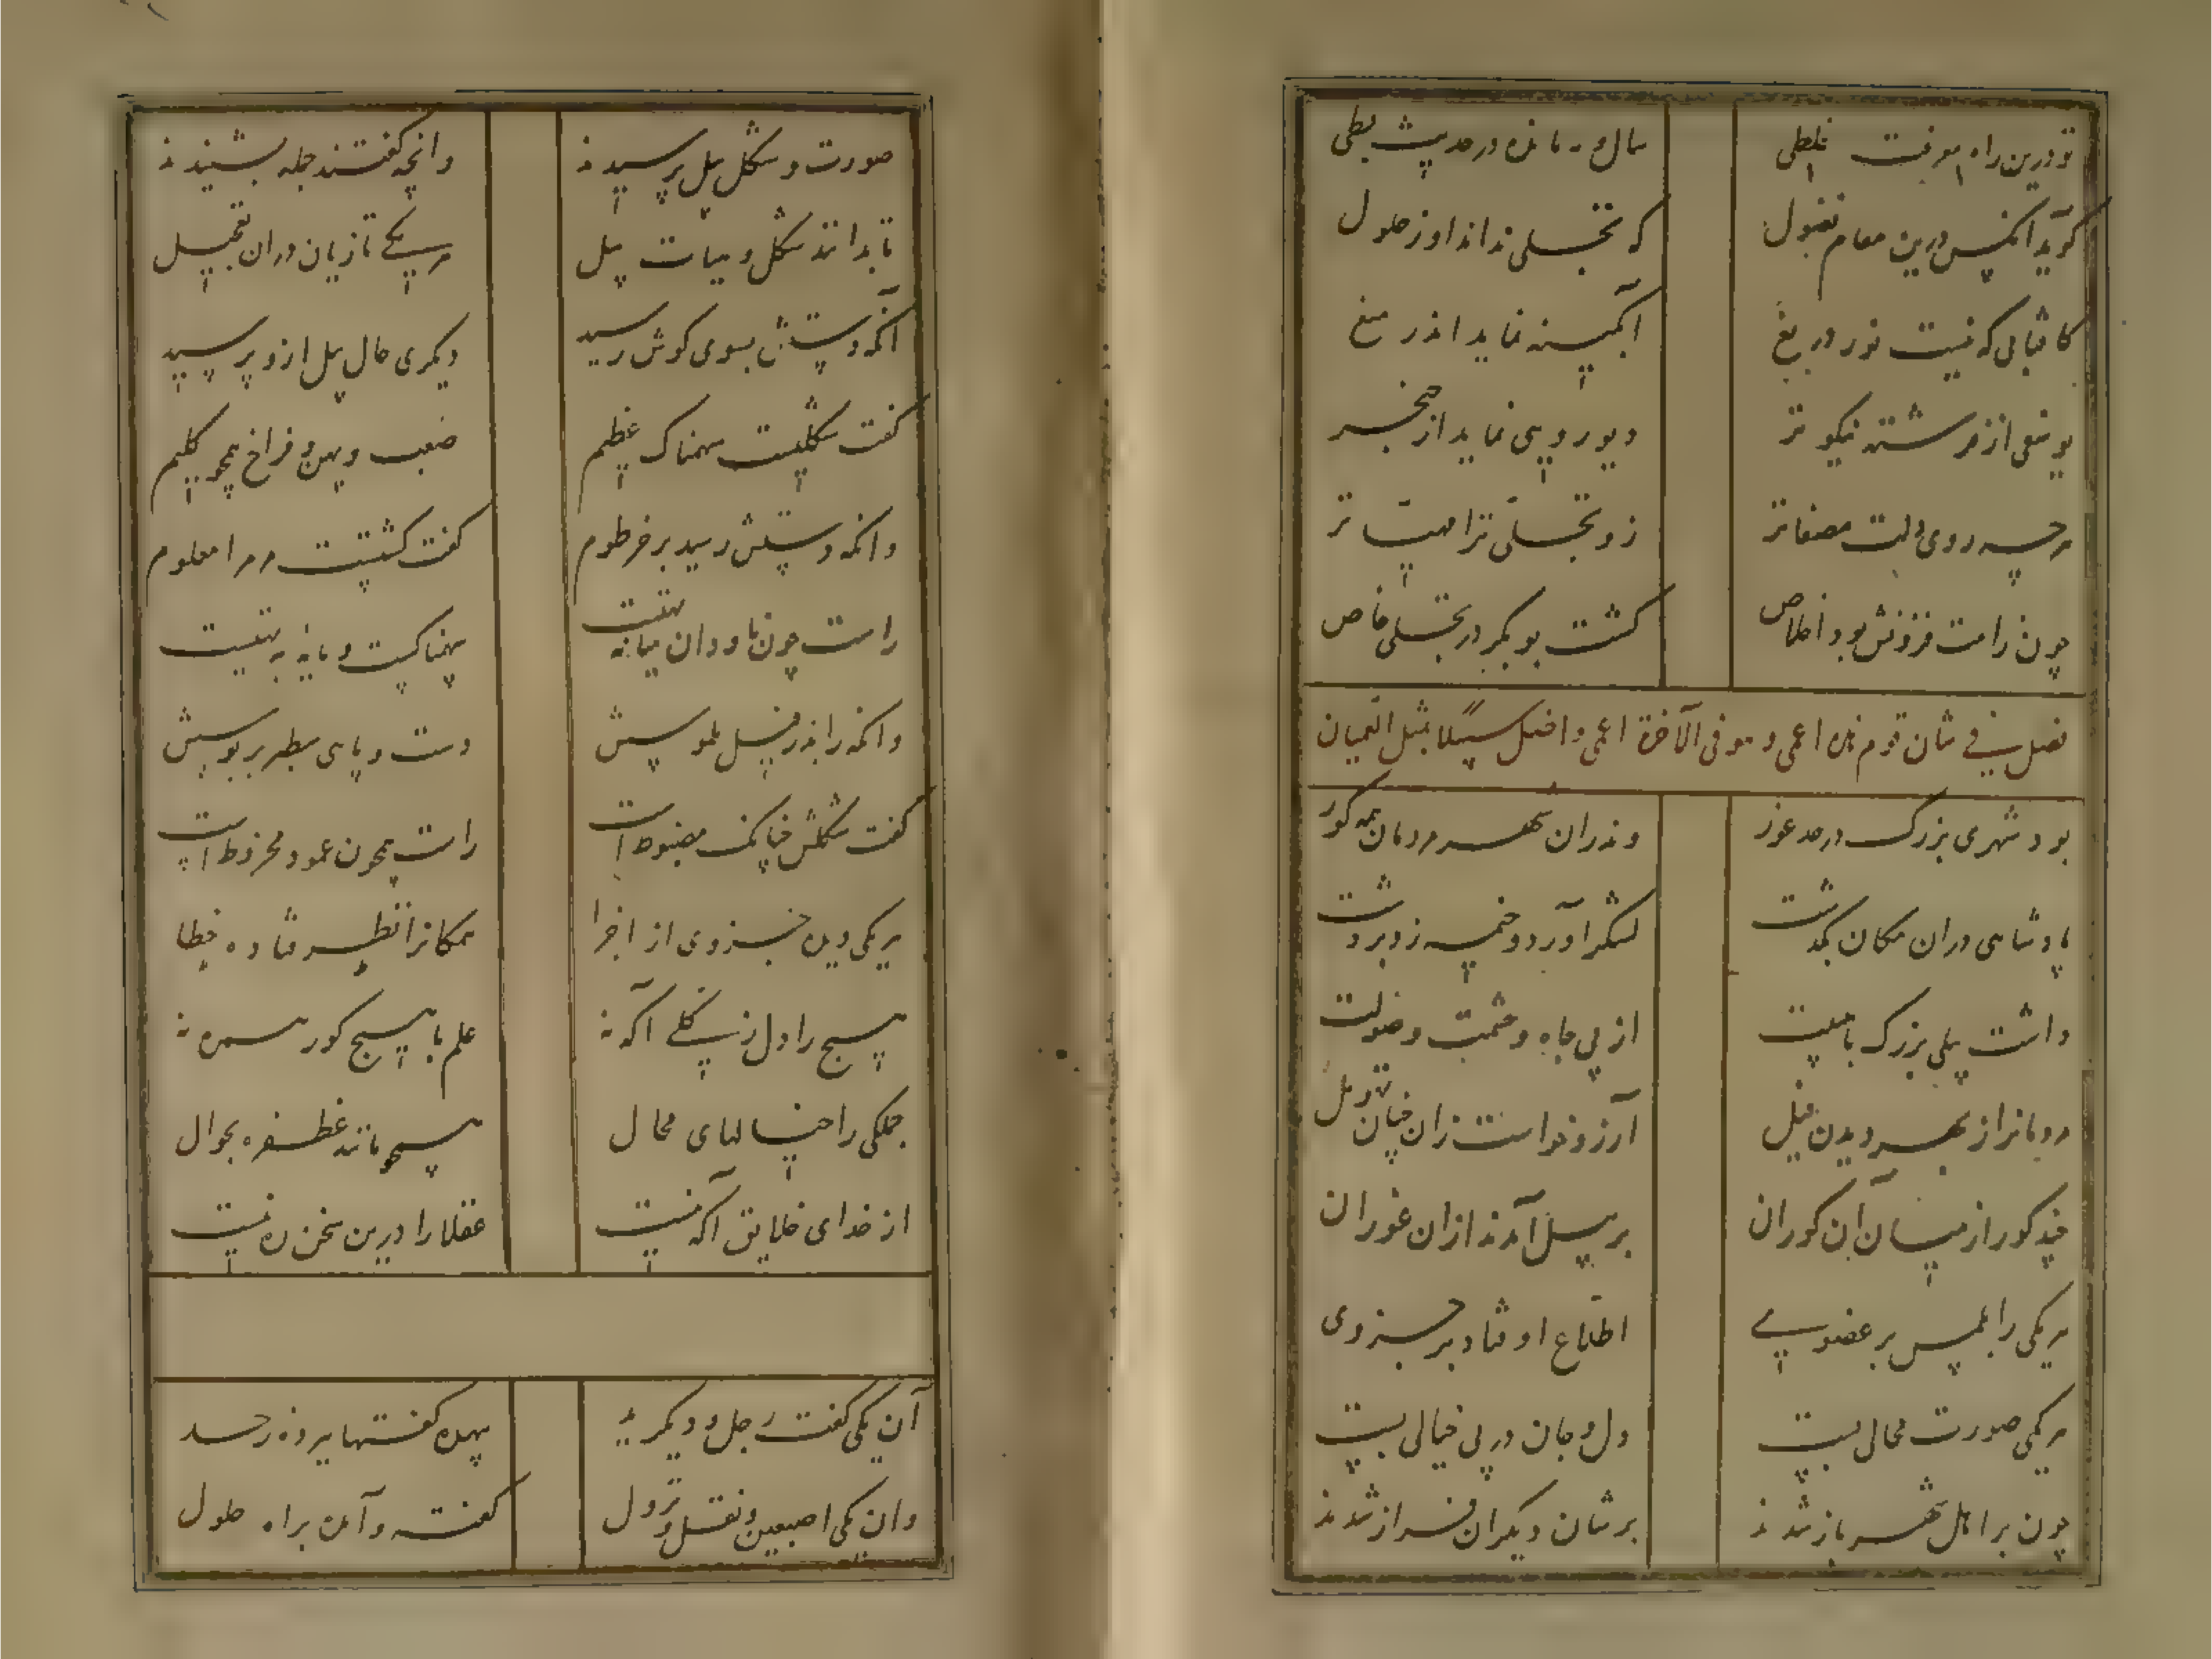 تو درین راه معرفت غلطی
سال و ماه مانده در حدیث بطی
گوید آنکس درین مقام فضول
که تجلی نداند او ز حلول
کافتابی که نیست نور دریغ
آبگینه نماید اندر میغ
یوسفی از فرشته نیکوتر
دیو رویی نماید از خنجر
هرچه روی دلت مصفاتر
زو تجلی ترا مهیاتر
چون ز امت فزونش بود اخلاص
گشت بوبکر در تجلی خاص
فصل فی شان قوم هذه اعمی و هو فی الآخرة اعمی و اضل سبیلا مثل العمیان
بود شهری بزرگ در حد غور
وندران شهر مردمان همه کور
پادشاهی دران مکان بگذشت
لشکر آورد و خیمه زد بر دشت
داشت پیلی بزرگ با هیبت
از پی جاه و حشمت و صولت
مردمانرا ز بهر دیدن پیل
آرزو خواست زان چنان تهویل
چند کور از میان آن کوران
بر پیل آمدند ازان عوران
هر یکی را بلمس بر عضوی
اطلاع اوفتاد بر جزوی
هر یکی صورت محالی بست
دل و جان در پی خیالی بست
چون بر اهل شهر باز شدند
برشان دیگران فراز شدند
صورت و شکل پیل پرسیدند
وانچه گفتند جمله بشنیدند
تا بدانند شکل و هیات پیل
هر یکی تازیان دران تعجیل
آنکه دستش بسوی گوش رسید
دیگری حال پیل ازو پرسید
گفت شکلیست سهمناک عظیم
صعب و پهن و فراخ همچو گلیم
وانکه دستش رسید بر خرطوم
گفت گشتست مر مرا معلوم
راست چون ناودان میانه تهیست
سهمناکست و مایه تبهیست
وانکه را بد ز پیل ملموسش
دست و پای سطبر بر بوسش
گفت شکلش چنانکه مضبوط است
راست همچون عمود مخروط است
هر یکی دیده جزوی از اجزا
همگانرا نظر فتاده خطا
هیچ را دل ز کلی آگه نه
علم با هیچ کور همره نه
جملگی را خیالهای محال
هیچو مانند غطفره بجوال
از خدای خلایق آگه نیست
عقلا را درین سخن ره نیست
آن یکی گفت رجل و دیگر ید
بیهده گفتها ببرده ز حد
وان یکی اصبعین و نقل و نزول
گفته و آمده براه حلول